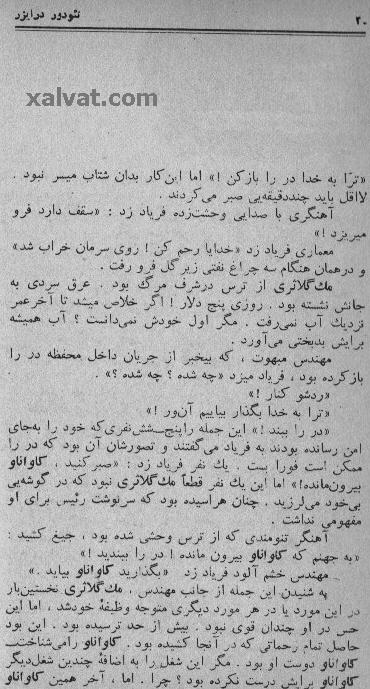 ۲۰ تئودور درایزر
xalvat.com
«ترا به خدا در را بازکن !» اما این‌کار بدان شتاب میسر نبود .
لااقل باید چنددقیقه‌یی صبر می‌کردند .
آهنگری با صدایی وحشت‌زده فریاد زد : «سقف دارد فرو
میریزد !»
معماری فریاد زد «خدایا رحم کن ! روی سرمان خراب شد»
و درهمان هنگام سه چراغ نفتی زیر گل فرو رفت .
مك‌گلاثری از ترس درشرف مرگ بود . عرق سردی به
جانش نشسته بود . روزی پنج دلار ! اگر خلاص میشد تا آخرعمر
نزدیك آب نمی‌رفت . مگر اول خودش نمی‌دانست ؟ آب همیشه
برایش بدبختی می‌آورد .
مهندس مبهوت ، که بیخبر از جریان داخل محفظه در را
بازکرده بود ، فریاد میزد «چه شده ؟ چه شده ؟» .
«ردشو کنار !»
«ترا به خدا بگذار بیاییم آن‌ور !»
«در را ببند !» این جمله را پنج‌ـ‌شش‌نفری‌که خود را به‌جای
امن رسانده بودند به فریاد می‌گفتند و تصورشان آن بود که در را
ممکن است فورا بست . یك نفر فریاد زد : «صبرکنید ، کاواناو
بیرون‌مانده!» اما این یك نفر قطعاً مك‌گلاثری نبود که در گوشه‌یی
بی‌خود می‌لرزید . چنان هراسیده بود که سرنوشت رئیس برای او
مفهومی نداشت .
آهنگر تنومندی که از ترس وحشی شده بود ، جیغ کشید :
«به جهنم که کاواناو بیرون مانده ! در را ببندید !»
مهندس خشم آلود فریاد زد «بگذارید کاواناو بیاید .»
به شنیدن این جمله از جانب مهندس ، مك‌گلاثری نخستین‌بار
در این مورد یا در هر مورد دیگری متوجه وظیفهٔ خودشد ، اما این
حس در او چندان قوی نبود . بیش از حد ترسیده بود . این بود
حاصل تمام زحماتی که در آنجا کشیده بود . کاواناو را می‌شناخت‌ـ
کاواناو دوست او بود . مگر این شغل را به اضافهٔ چندین شغل‌دیگر
کاواناو برایش درست نکرده بود ؟ چرا . اما ، آخر همین کاواناو